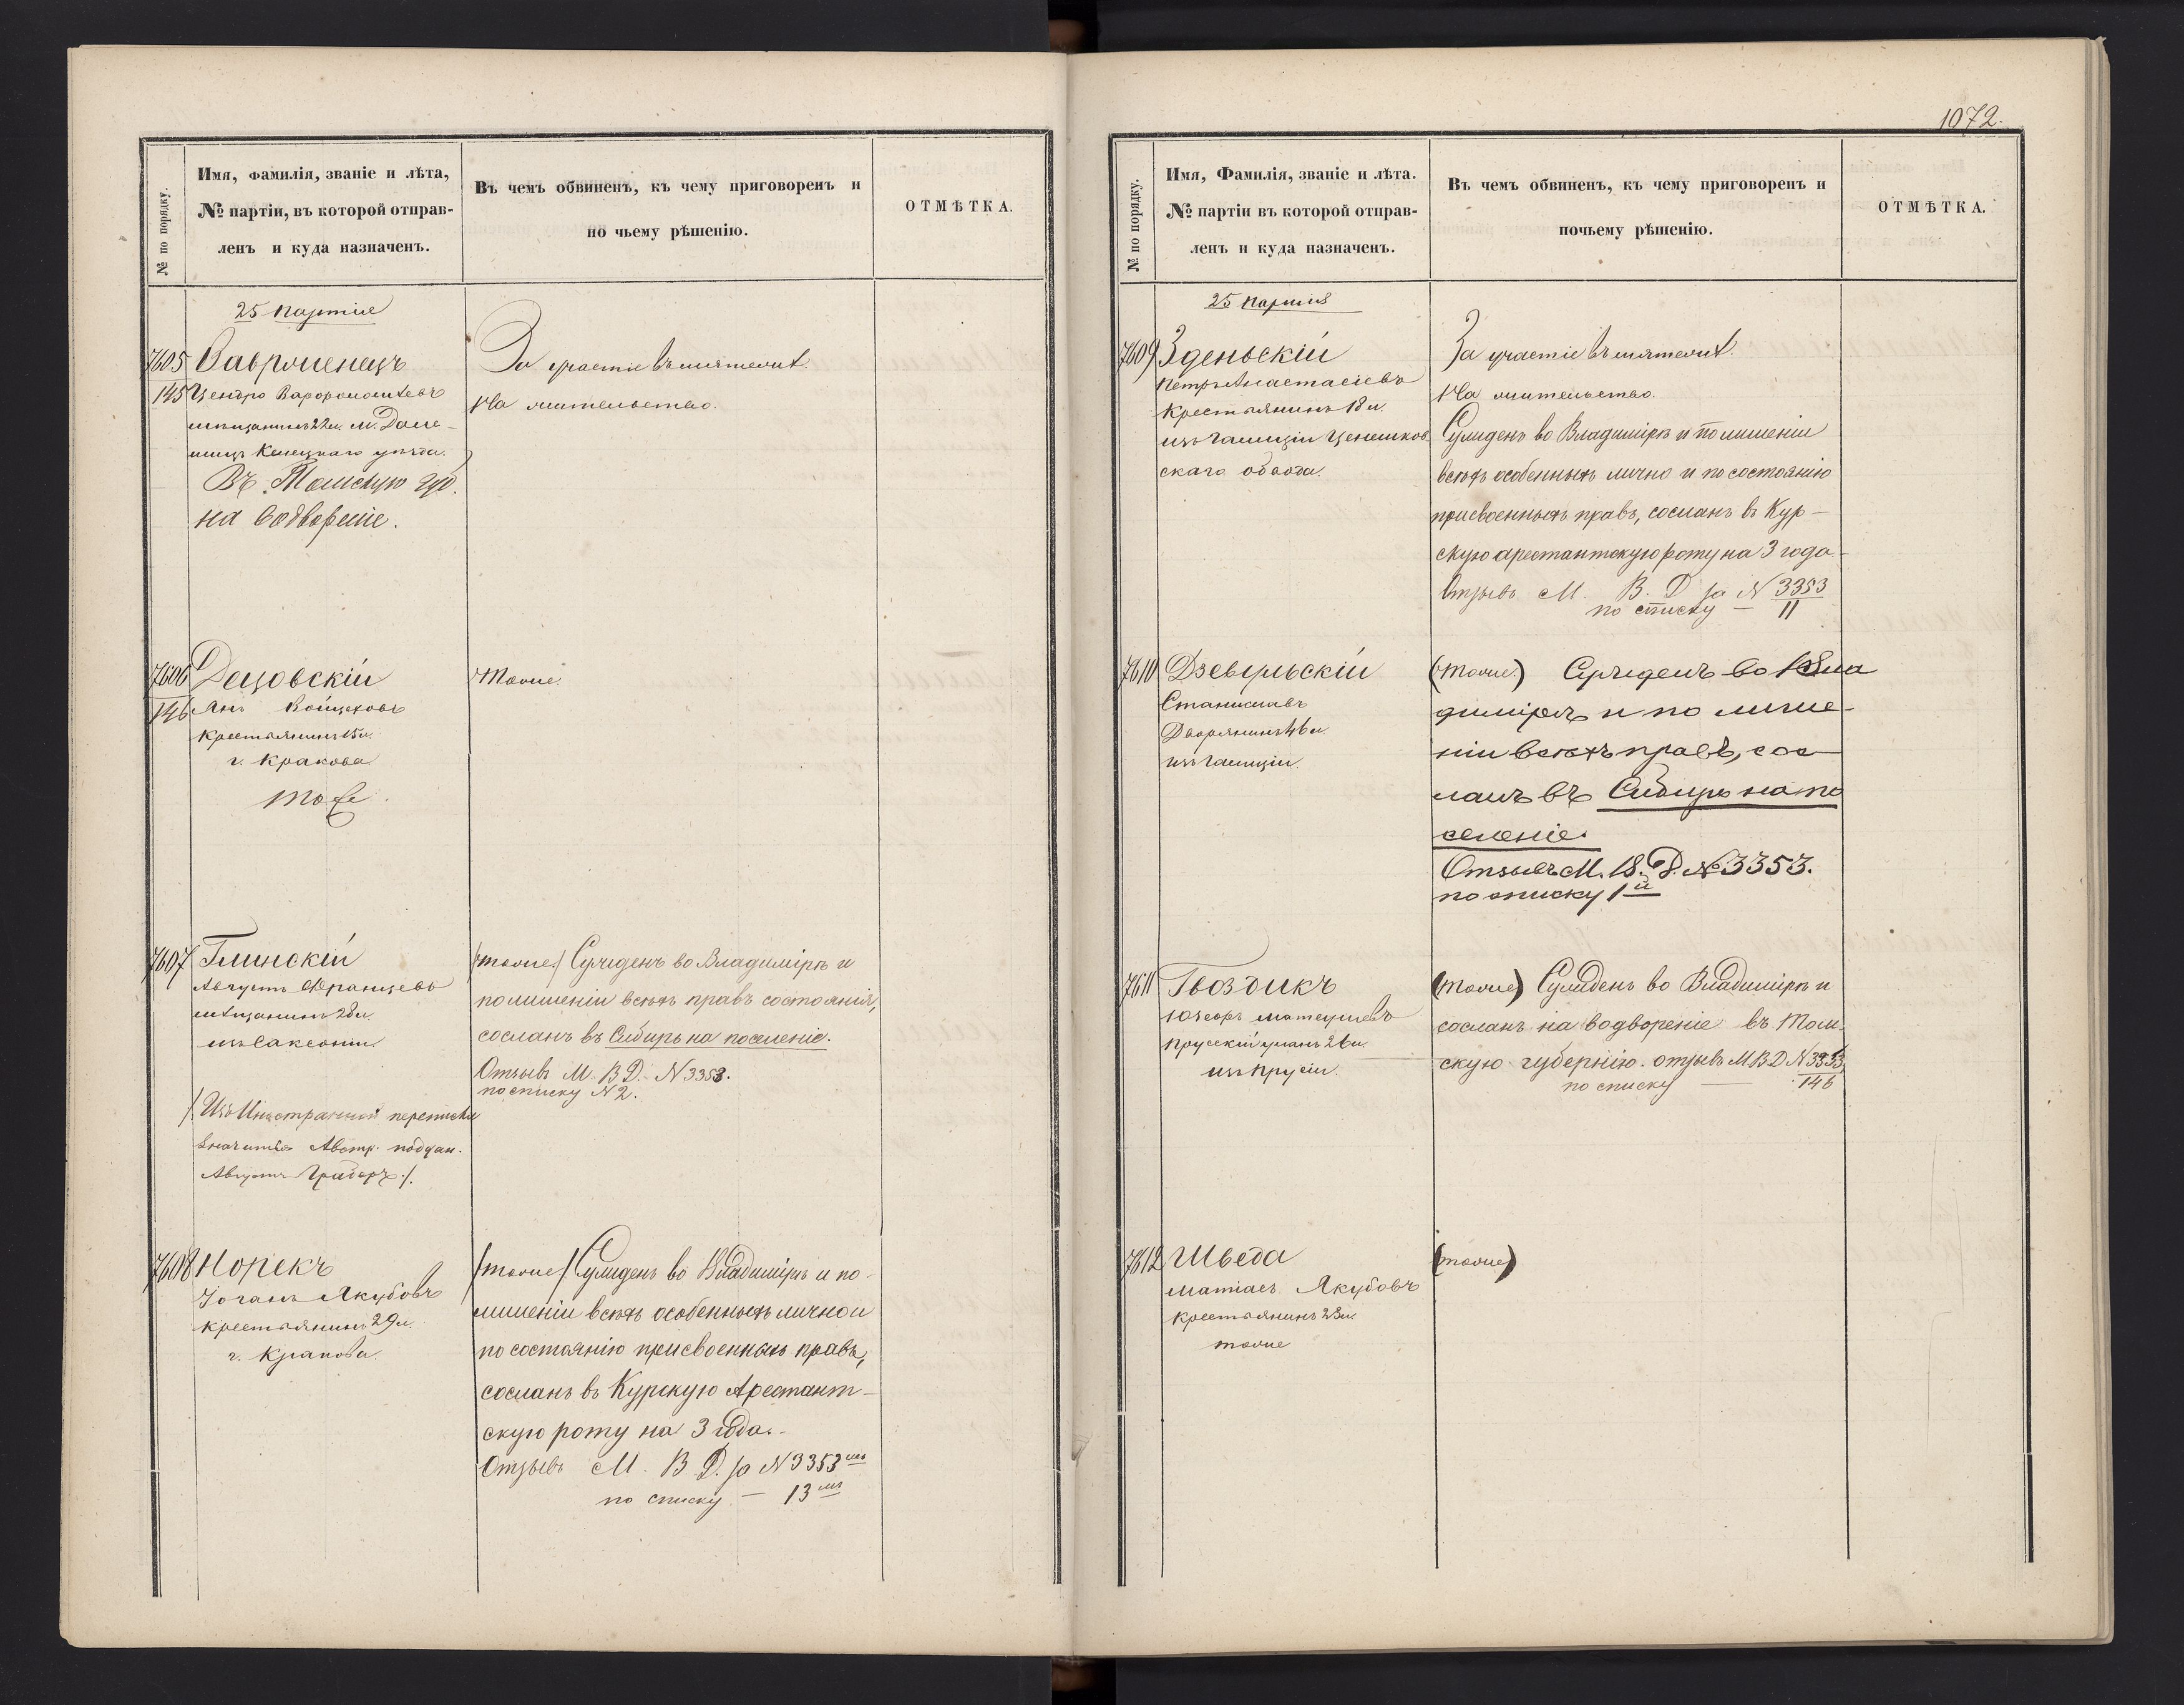 № по порядку.
Имя, Фамилія, званіе и лѣта,
№ партіи, въ которой отправ-
ленъ и куда назначенъ.
Въ чемъ обвиненъ, къ чему приговоренъ и
по чьему рѣшенію.
ОТМѢТКА.
25 партія
7605
145
За участіе въ мятежѣ.
На жительство.
мѣщанинъ 22 л. м.
уѣзда.
Въ Томскую губ.
на водвореніе.
7606
146
Децовскій
Янъ Войцеховъ
Крестьянинъ 15 л.
г. Кракова
тоже
тоже.
7607
Глинскій
Августъ Францевъ
мѣщанинъ 28 л.
изъ Саксоніи
/. Изъ Иностранной переписки
значится Австр. поддан.
Августъ ./.
/тоже/ Сужденъ во Владимірѣ и
по лишеніи всѣхъ правъ состоянія,
сосланъ въ Сибирь на поселеніе.
Отзывъ М. В. Д. N 3353.
по списку N 2.
7608
Норекъ
Іоганъ Якубовъ
Крестьянинъ 29 л.
г. Кракова
/тоже/ Сужденъ во Владимірѣ и по
лишеніи всѣхъ особенныхъ лично и
по состоянію присвоенныхъ правъ,
сосланъ въ Курскую Арестант-
скую роту на 3 года.-
Отзывъ М. В. Д. за N 3353мъ
по списку — 13мъ
1072.
№ по порядку.
Имя, Фамилія, званіе и лѣта.
№ партіи въ которой отправ-
ленъ и куда назначенъ.
Въ чемъ обвиненъ, къ чему приговоренъ и
почьему рѣшенію.
ОТМѢТКА.
25 партія
7609
Зденьскій
Петръ Анастасіевъ
Крестьянинъ 18 л.
изъ Галиціи
скаго
За участіе въ мятежѣ.
На жительство.
Сужденъ во Владимірѣ и по лишеніи
всѣхъ особенныхъ лично и по состоянію
присвоенныхъ правъ, сосланъ въ Кур-
скую арестантскую роту на 3 года.-
Отзывъ М. В. Д. за N 3353
по списку — 11
7610
Станиславъ
Дворянинъ 46 л.
изъ Галиціи.
(тоже.) Сужденъ во Вла
димірѣ и по лише-
ніи всѣхъ правъ, сос-
ланъ въ Сибирь на по
селеніе.
Отзывъ М. В. Д. № 3353.
по списку 1й
7611
Гвоздикъ
Юзефъ Матеушевъ
Прусскій уланъ 26 л.
изъ Прусіи.
(тоже) Сужденъ во Владимірѣ и
сосланъ на водвореніе въ Том-
скую губернію. отзывъ М В Д N 3353,
по списку — 146
7612
Шведа
Матіасъ Якубовъ
Крестьянинъ 28 л.
тоже
(тоже)